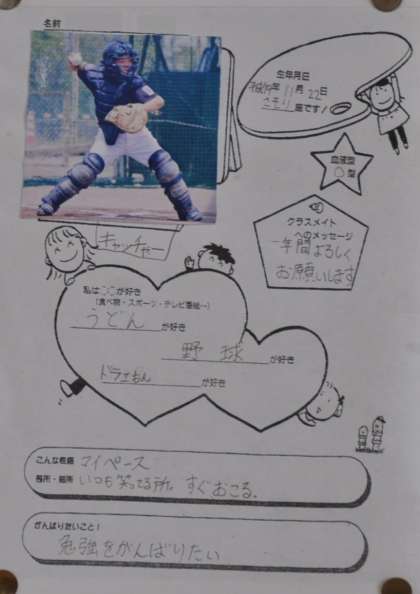 名前
生年月日
平成14年 11月 22日
さそり座です!
血液型
O型
キャッチャー
クラスメイト
へのメッセージ
一年間よろしく
お願いします
私は○○が好き
(食べ物・スポーツ・テレビ番組…)
うどん が好き
野球 が好き
ドラえもん が好き
こんな性格 マイペース
長所・短所 いつも笑ってる所 すぐおこる。
がんばりたいこと!
勉強をがんばりたい